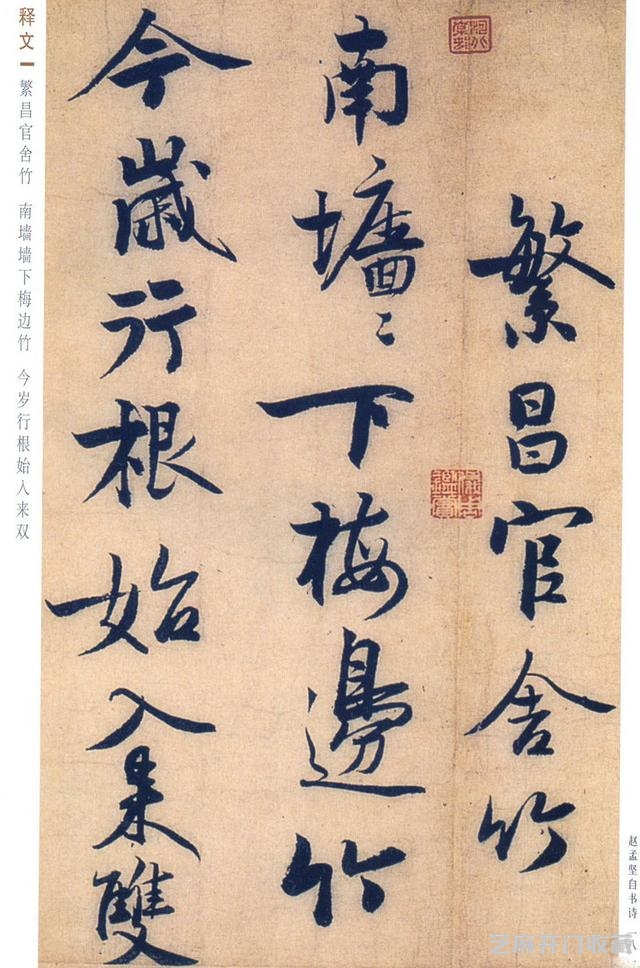 繁昌官舍竹
南墻〻下梅邊竹
今歲行根始入来雙
释文
繁昌官舍竹 南墙墙下梅边竹 今岁行根始入来双
赵孟坚自书诗 一八
芝麻开门收藏